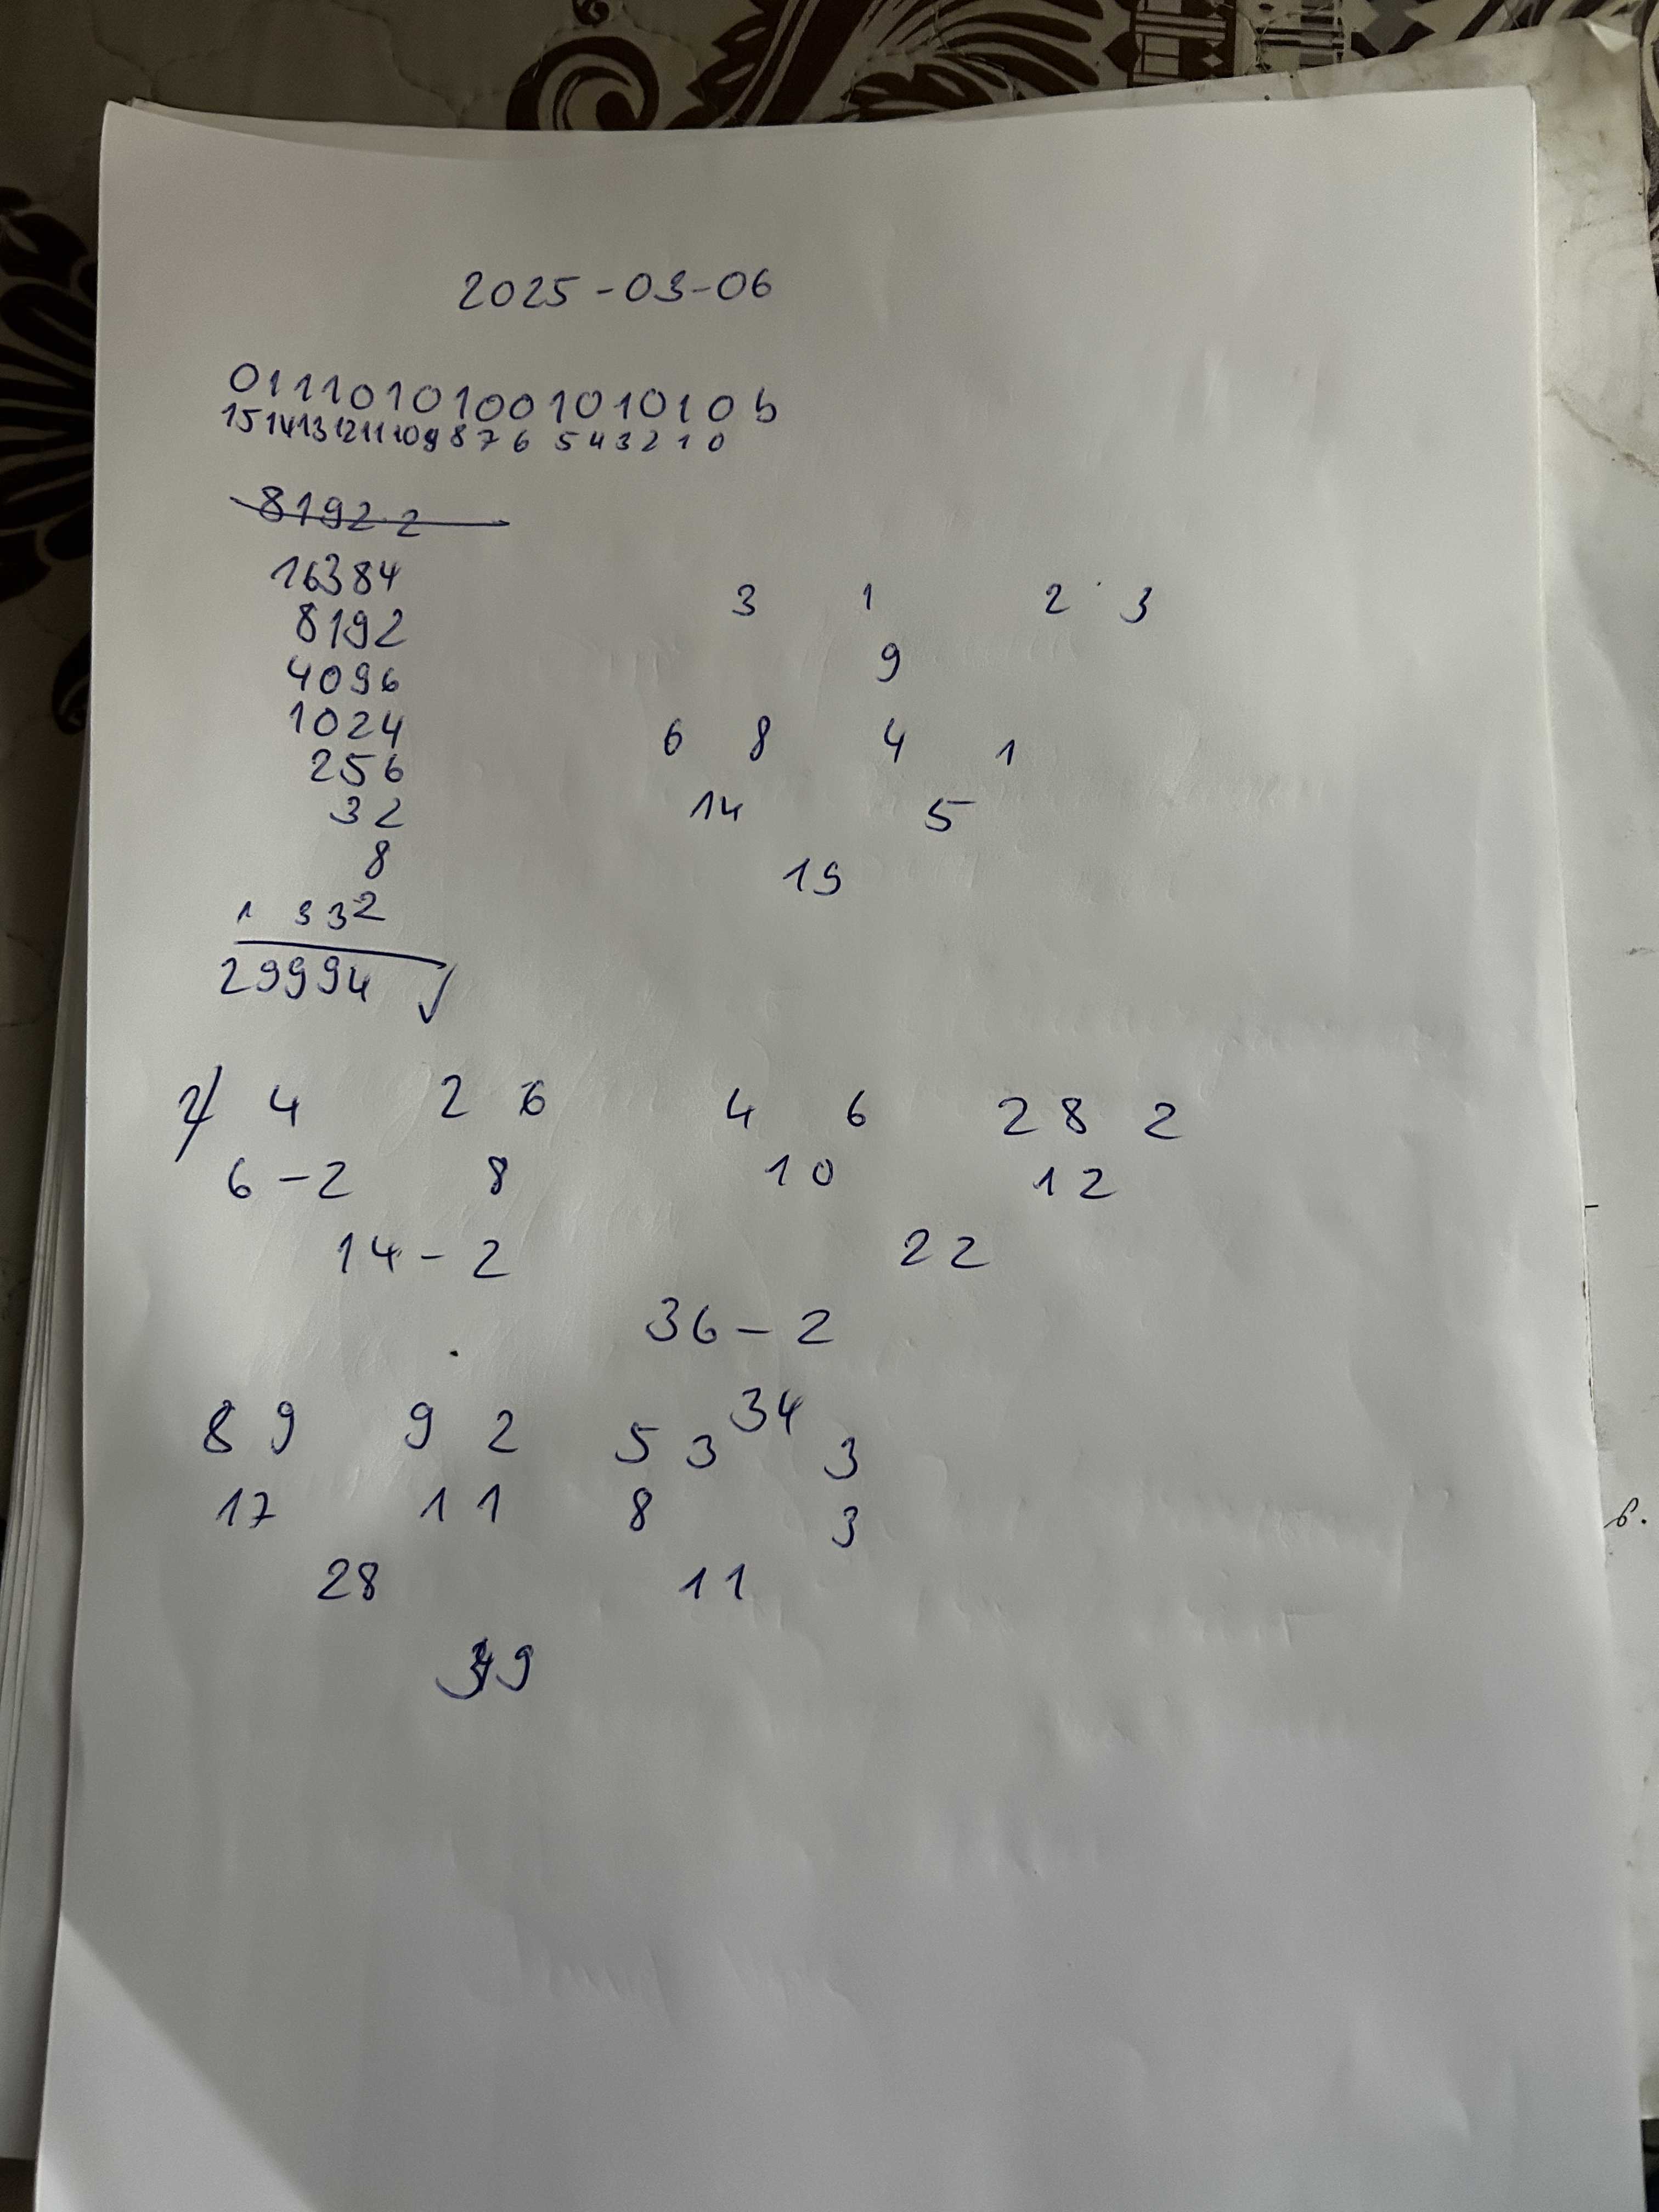 2025-03-06
0111010100101010b
15 14 13 12 11 10 9 8 7 6 5 4 3 2 1 0
8192 2
16384
8192
4096
1024
256
32
8
1 3 3 2
29994
3 1 2 3
9
6 8 4 1
14 5
19
4 2 6 4 6 2 8 2
6-2 8 10 12
14-2 22
36-2
34
8 9 9 2 5 3 3
17 11 8 3
28 11
39
6.